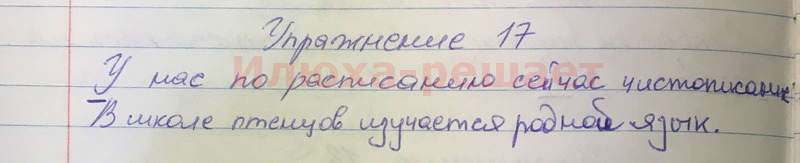 Упражнение 17
Илюха-решает
У нас по расписанию сейчас чистописание
В школе птенцов изучается родной язык.